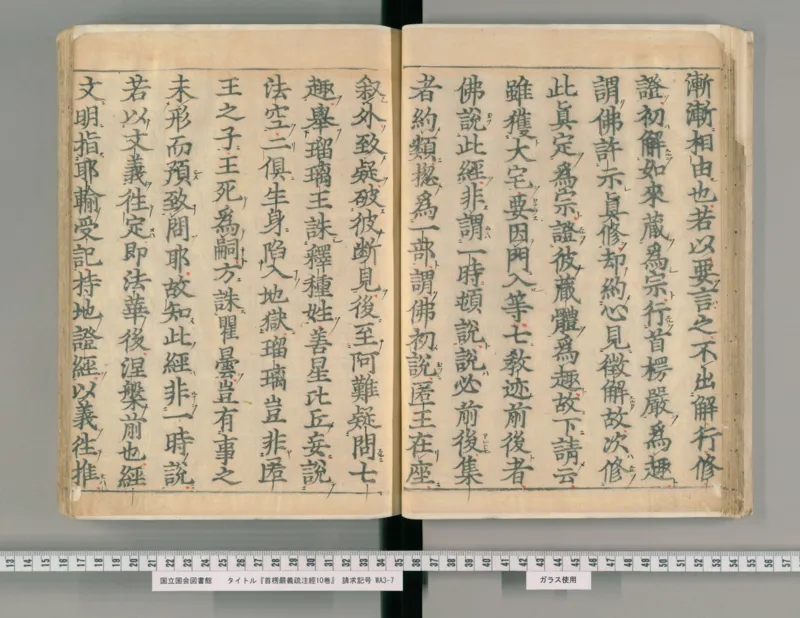 漸漸相由也若以要言之不出解行修
證初解如來蔵為宗行首楞嚴為趣
謂佛許示真修却約心見徴解故次修
此真定為宗證彼蔵體為趣故下請云
雖獲大宅要因門入等七教迹前後者
佛說此經非謂一時頓說說必前後集
者約類揔為一部謂佛初說匿王在座
叙外致疑破彼断見後至阿難疑問七
趣舉瑠璃王誅釋種姓善星比丘妄說
法空二俱生身陷入地獄瑠璃豈非匿
王之子王死為嗣方誅瞿曇豈有事之
未形而預致問耶故知此經非一時說
若以文義往定即法華後涅槃前也經
文明指耶輸受記持地證經以義往推
国立国会図書館 タイトル『首楞嚴義疏注經10巻』 請求記号 WA3-7
ガラス使用